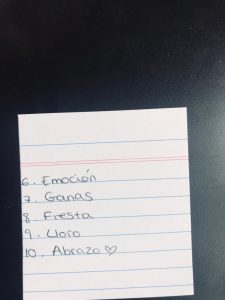 6. Emoción
7. Ganas
8. Fiesta
9. Lloro
10. Abrazo ♡